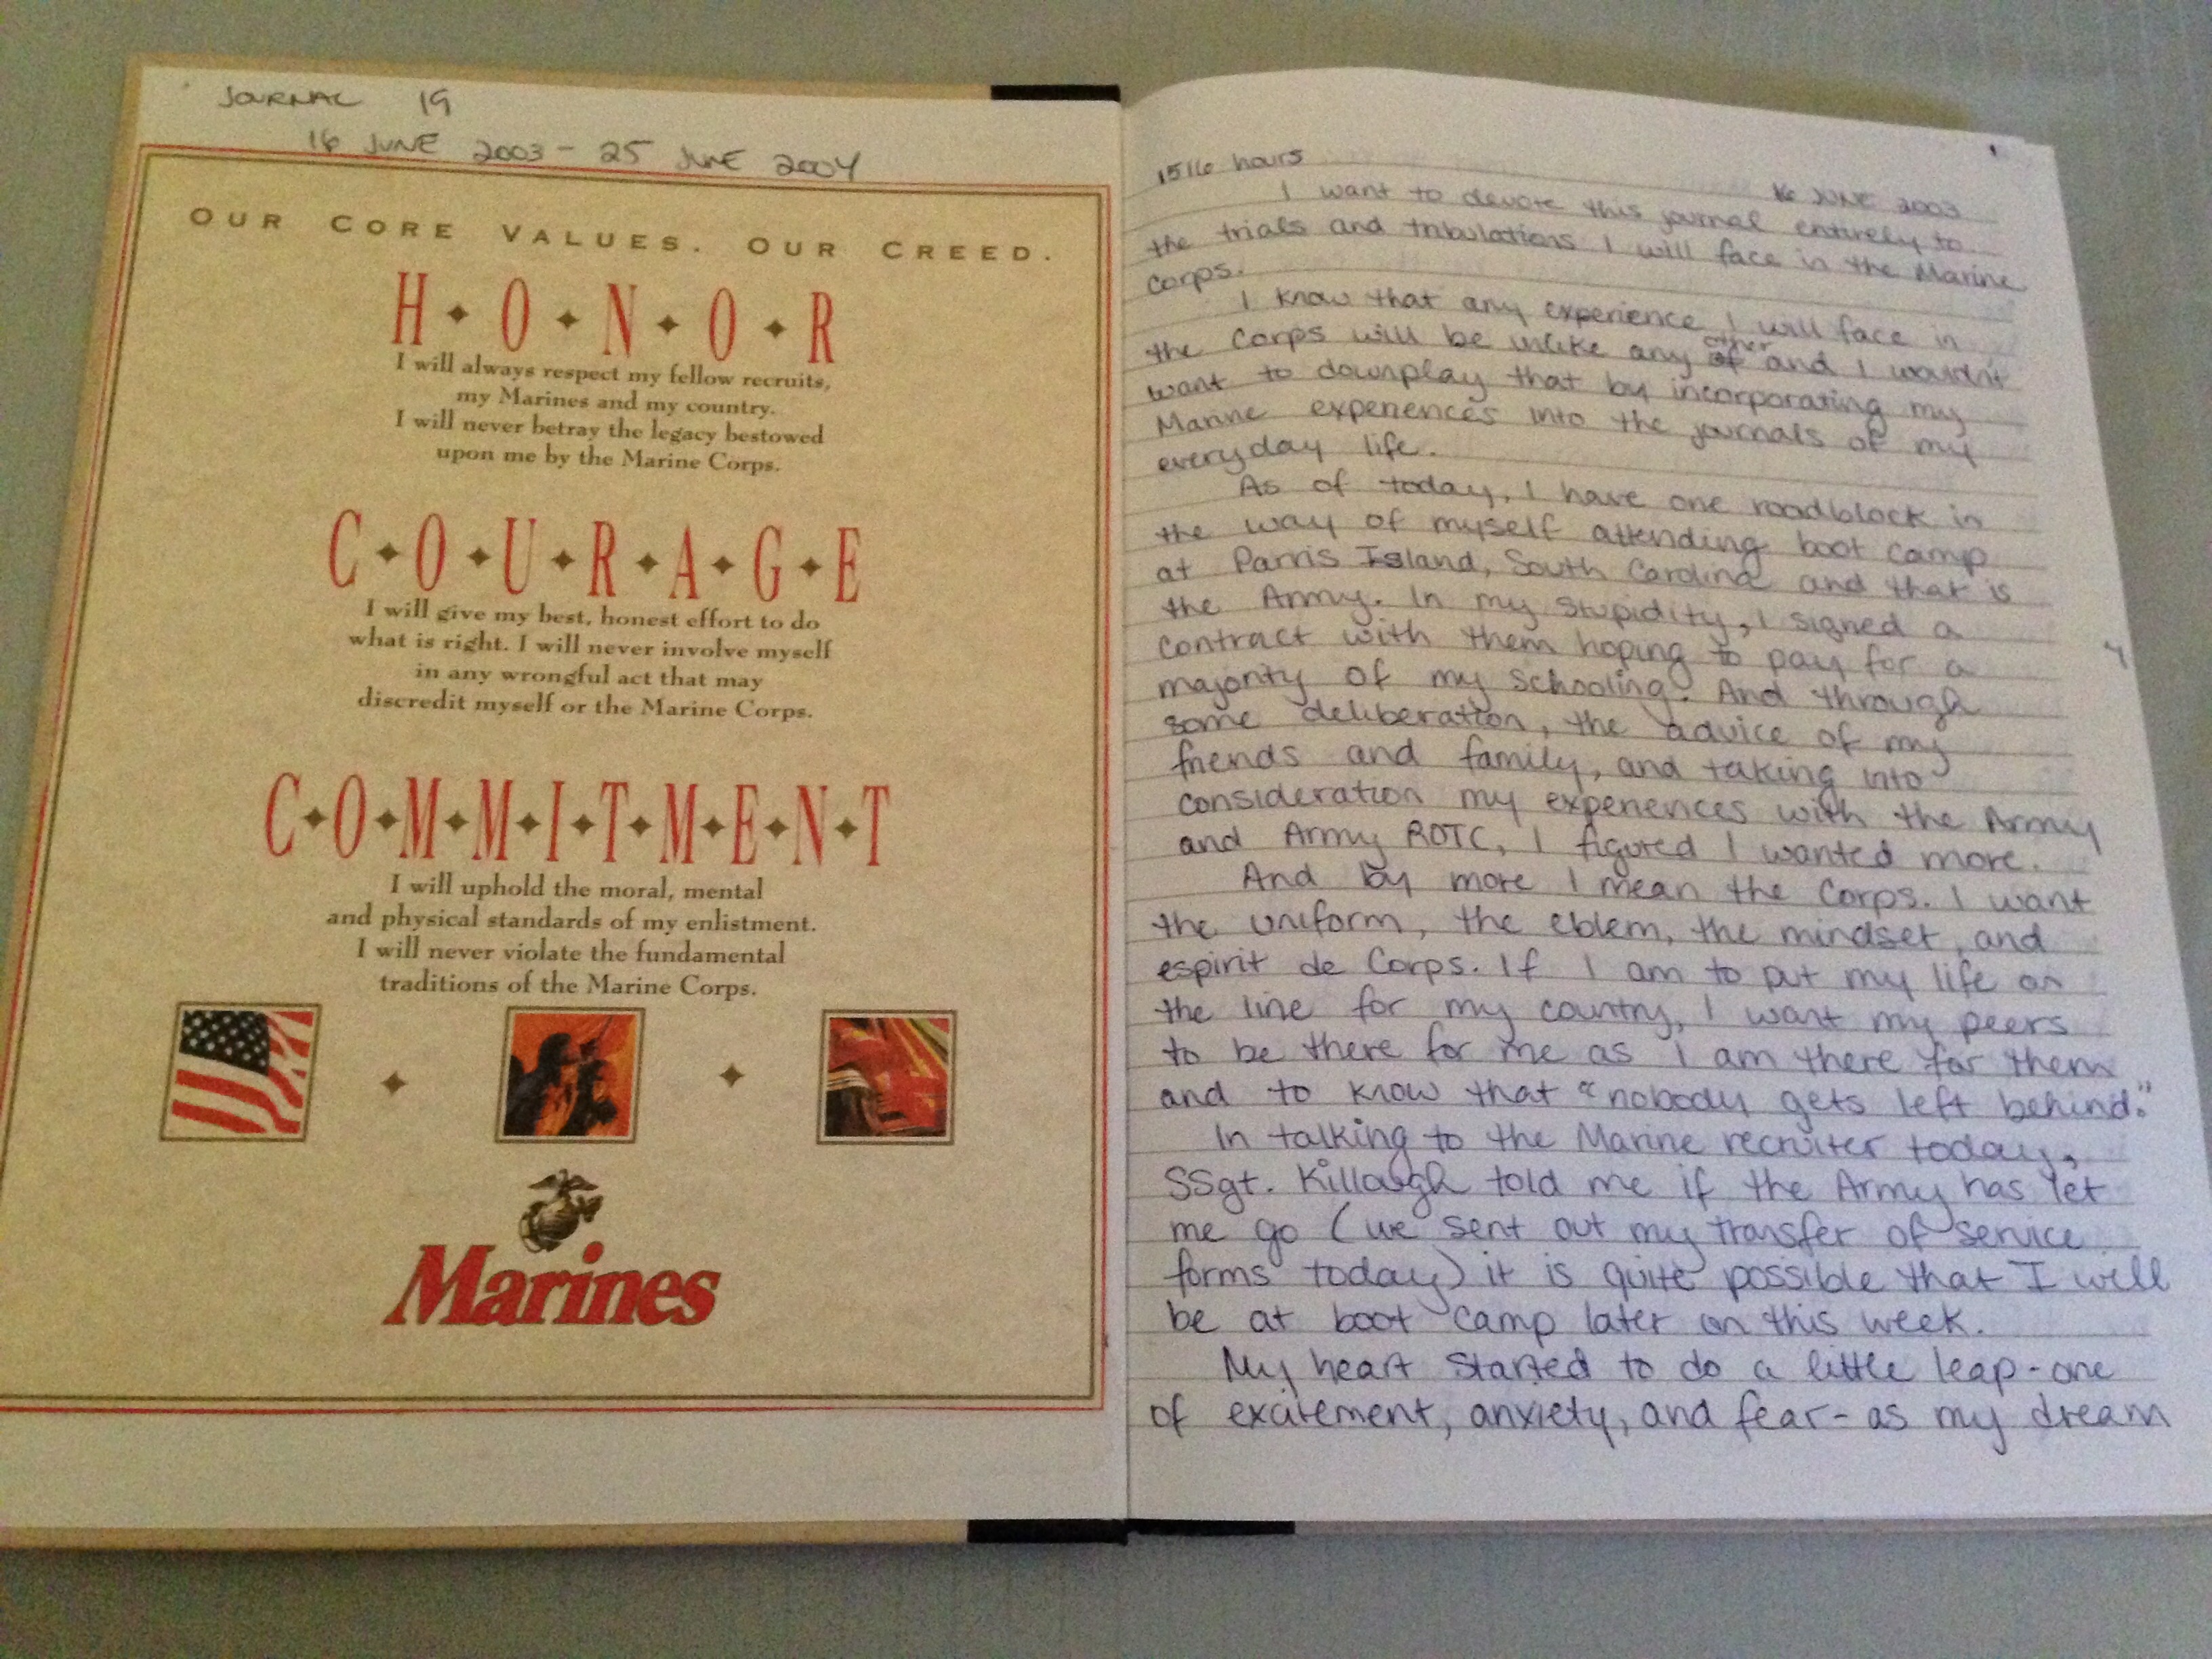 JOURNAL 19
16 JUNE 2003 - 25 JUNE 2004
OUR CORE VALUES. OUR CREED.
H•O•N•O•R
I will always respect my fellow recruits,
my Marines and my country.
I will never betray the legacy bestowed
upon me by the Marine Corps.
C•O•U•R•A•G•E
I will give my best, honest effort to do
what is right. I will never involve myself
in any wrongful act that may
discredit myself or the Marine Corps.
C•O•M•M•I•T•M•E•N•T
I will uphold the moral, mental
and physical standards of my enlistment.
I will never violate the fundamental
traditions of the Marine Corps.
Marines
1516 hours
16 JUNE 2003
I want to devote this journal entirely to
the trials and tribulations I will face in the Marine
Corps.
I know that any experience I will face in
the Corps will be unlike any other and I wouldn't
want to downplay that by incorporating my
Marine experiences into the journals of my
everyday life.
As of today, I have one roadblock in
the way of myself attending boot camp
at Parris Island, South Carolina and that is
the Army. In my stupidity, I signed a
contract with them hoping to pay for a
majority of my schooling. And through
some deliberation, the advice of my
friends and family, and taking into
consideration my experiences with the Army
and Army ROTC, I figured I wanted more.
And by more I mean the Corps. I want
the uniform, the eblem, the mindset, and
espirit de Corps. If I am to put my life on
the line for my country, I want my peers
to be there for me as I am there for them
and to know that "nobody gets left behind."
In talking to the Marine recruiter today,
SSgt. Killough told me if the Army has let
me go (we sent out my transfer of service
forms today) it is quite possible that I will
be at boot camp later on this week.
My heart started to do a little leap-one
of excitement, anxiety, and fear- as my dream